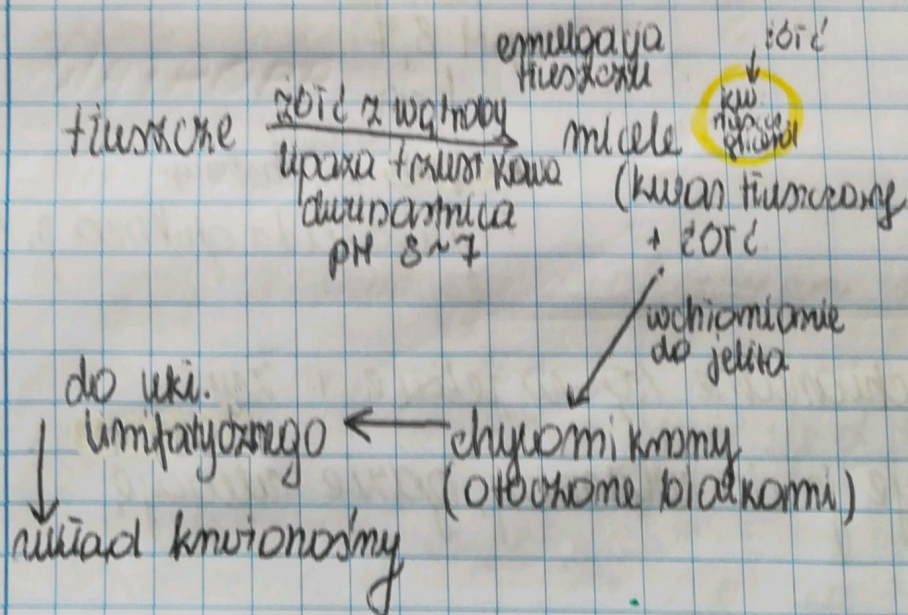 emulgacja
tłuszczu
żółć
tłuszcze
żółć z wątroby
lipaza trzustkowa
dwunastnica
pH 8~7
micele
kw.
(kwas tłuszczowy
+ żółć
wchłanianie
do jelita
chylomikrony
(otoczone białkami)
do ukł.
limfatycznego
układ krwionośny